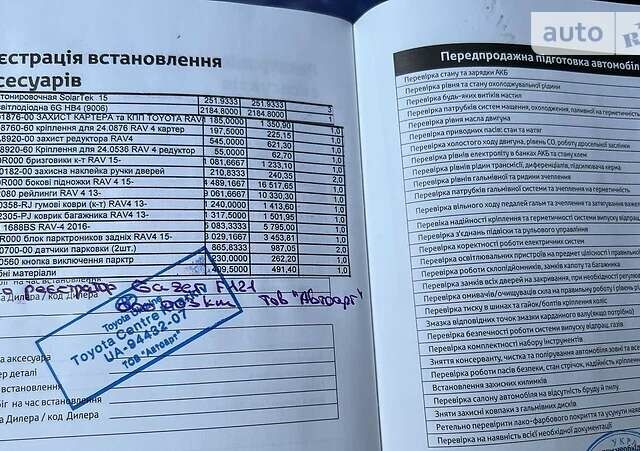 auto
RIA
єстрація встановлення
сесуарів
тонировочная SolarTek 15 251.9333 251.9333 3
світлодіодна 6G HB4 (9006) 2184.8000 2184.8000 1
01876-00 ЗАХИСТ КАРТЕРА та КПП TOYOTA RAV4 1 185,0000 1 350,90 1,0
18760-60 кріплення для 24.0876 RAV 4 картер 197,5000 225,15 1,0
18920-00 захист редуктора RAV4 545,0000 621,30 1,0
18920-60 Кріплення для 24.0536 RAV 4 редуктор 55,0000 62,70 1,0
0R000 бризговики к-т RAV 15- 1 081,6667 1 233,10 1,0
00182-00 захисна наклейка ручки дверей 210,8333 240,35 2,0
0R000 бокові підніжки RAV 4 15- 14 489,1667 16 517,65 1,0
080 рейлинги RAV 4 13- 9 061,6667 10 330,30 1,0
0358-RJ гумові коври (к-т) RAV4 13- 1 240,0000 1 413,60 1,0
2305-PJ коврик багажника RAV4 13- 1 317,5000 1 501,95 1,0
1688BS RAV-4 2016- 5 083,3333 5 795,00 1,0
0R000 блок парктроников задніх RAV4 15- 3 029,1667 3 453,81 1,0
00700-00 датчики парковки (2шт.) 865,8333 987,05 2,0
0560 кнопка виключення парктр 230,0000 262,20 1,0
ні матеріали 409,5000 491,40 1,0
км
Тов "Автоарт"
а Дилера / код Дилера
Toyota Centre
UA-94432-07
ТОВ "Автоарт"
а аксесуара
ер деталі
встановлення
іг на час встановлення
а Дилера / код Дилера
Передпродажна підготовка автомобіл
Перевірка стану та зарядки АКБ
Перевірка рівня та стану охолоджувальної рідини
Перевірка будь-яких витіків мастил
Перевірка патрубків систем мащення, охолодження, паливної на герметичність
Перевірка рівня масла двигуна
Перевірка приводних пасів: стан та натяг
Перевірка холостого ходу двигуна, рівень СО, роботу дросельної заслінки
Перевірка рівнів електроліту в банках АКБ та стану клем
Перевірка рівнів рідин трансмісії, диференціалів, підсилювача керма
Перевірка рівнів гальмівної та ридини зчеплення
Перевірка патрубків гальмівної системи та зчеплення на герметичність
Перевірка вільного ходу педалей гальм та зчеплення та затягування важеля
Перевірка надійності кріплення та герметичності системи випуску відпрац
Перевірка з'єднань підвіски та рульового управління
Перевірка коректності роботи електричних систем
Перевірка освітлювальних пристроїв на предмет цілісності і правильної
Перевірка роботи склопідйомників, замків капоту та багажника
Перевірка замків всіх дверей на закривання, при необхідності регулюва
Перевірка омивачів/очищувача скла на правильну роботу і рівень рідини
Перевірка тиску в шинах та гайок/болтів кріплення коліс
Знаска відповідних точок змазки карданного валу(якщо потрібно)
Перевірка безпечності роботи системи випуску відпрац. газів
Перевірка комплектності набору інструментів
Зняття консерванту, чистка та полірування автомобіля зовні та все
Перевірка роботи пасів безпеки, стан стрічок, надійність кріплення
Встановлення захисних килимків
Перевірка салону автомобіля на відсутність бруду й пилу
Зняти захисні ковпаки з гальмівних дисків
Ретельно перевірити лако-фарбового покриття та усунути наявні
Перевірка на наявність всієї необхідної документації
УКРА